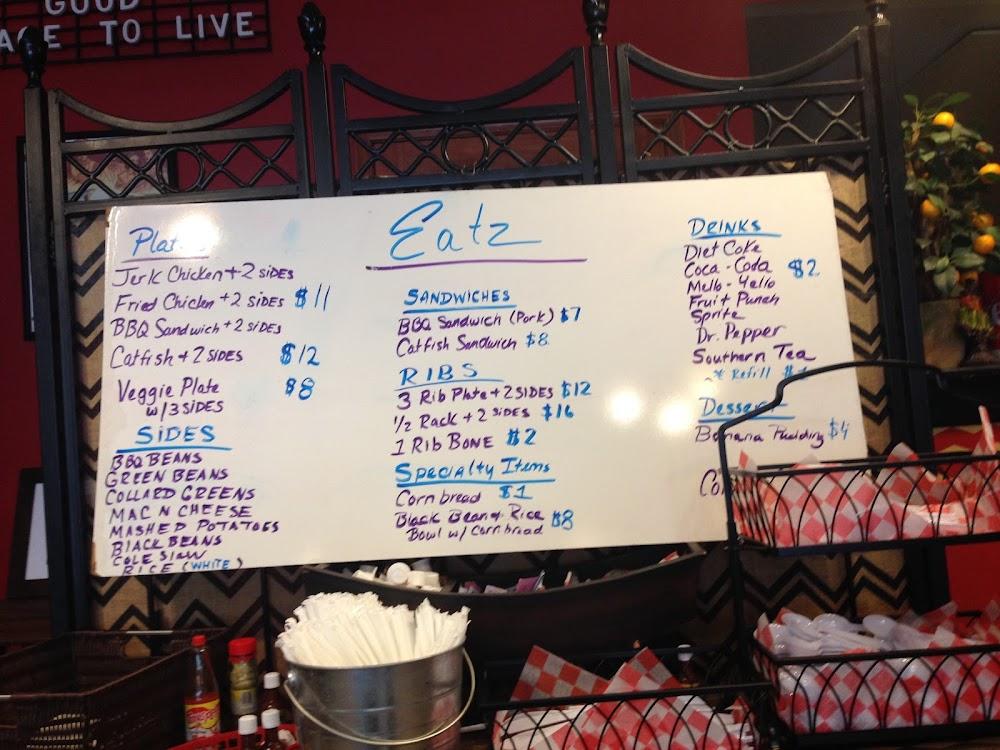 GOOD
TO LIVE
Eatz
Jerk Chicken + 2 SIDES
Fried Chicken + 2 SIDES $11
BBQ Sandwich + 2 SIDES
Catfish + 2 SIDES $12
Veggie Plate $8
w/3 SIDES
SIDES
BBQ BEANS
GREEN BEANS
COLLARD GREENS
MAC N CHEESE
MASHED POTATOES
BLACK BEANS
COLE Slaw
RICE (WHITE)
SANDWICHES
BBQ Sandwich (Pork) $7
Catfish Sandwich $8
RIBS
3 Rib Plate + 2 SIDES $12
1/2 Rack + 2 SIDES $16
1 Rib BONE $2
Specialty Items
Corn bread $1
Black Bean & Rice $8
Bowl w/ Cornbread
DRINKS
Diet Coke
Coca-Coda $2
Mello-Yello
Fruit Punch
Sprite
Dr. Pepper
Southern Tea
* Refill
Dessert
Banana Pudding $4